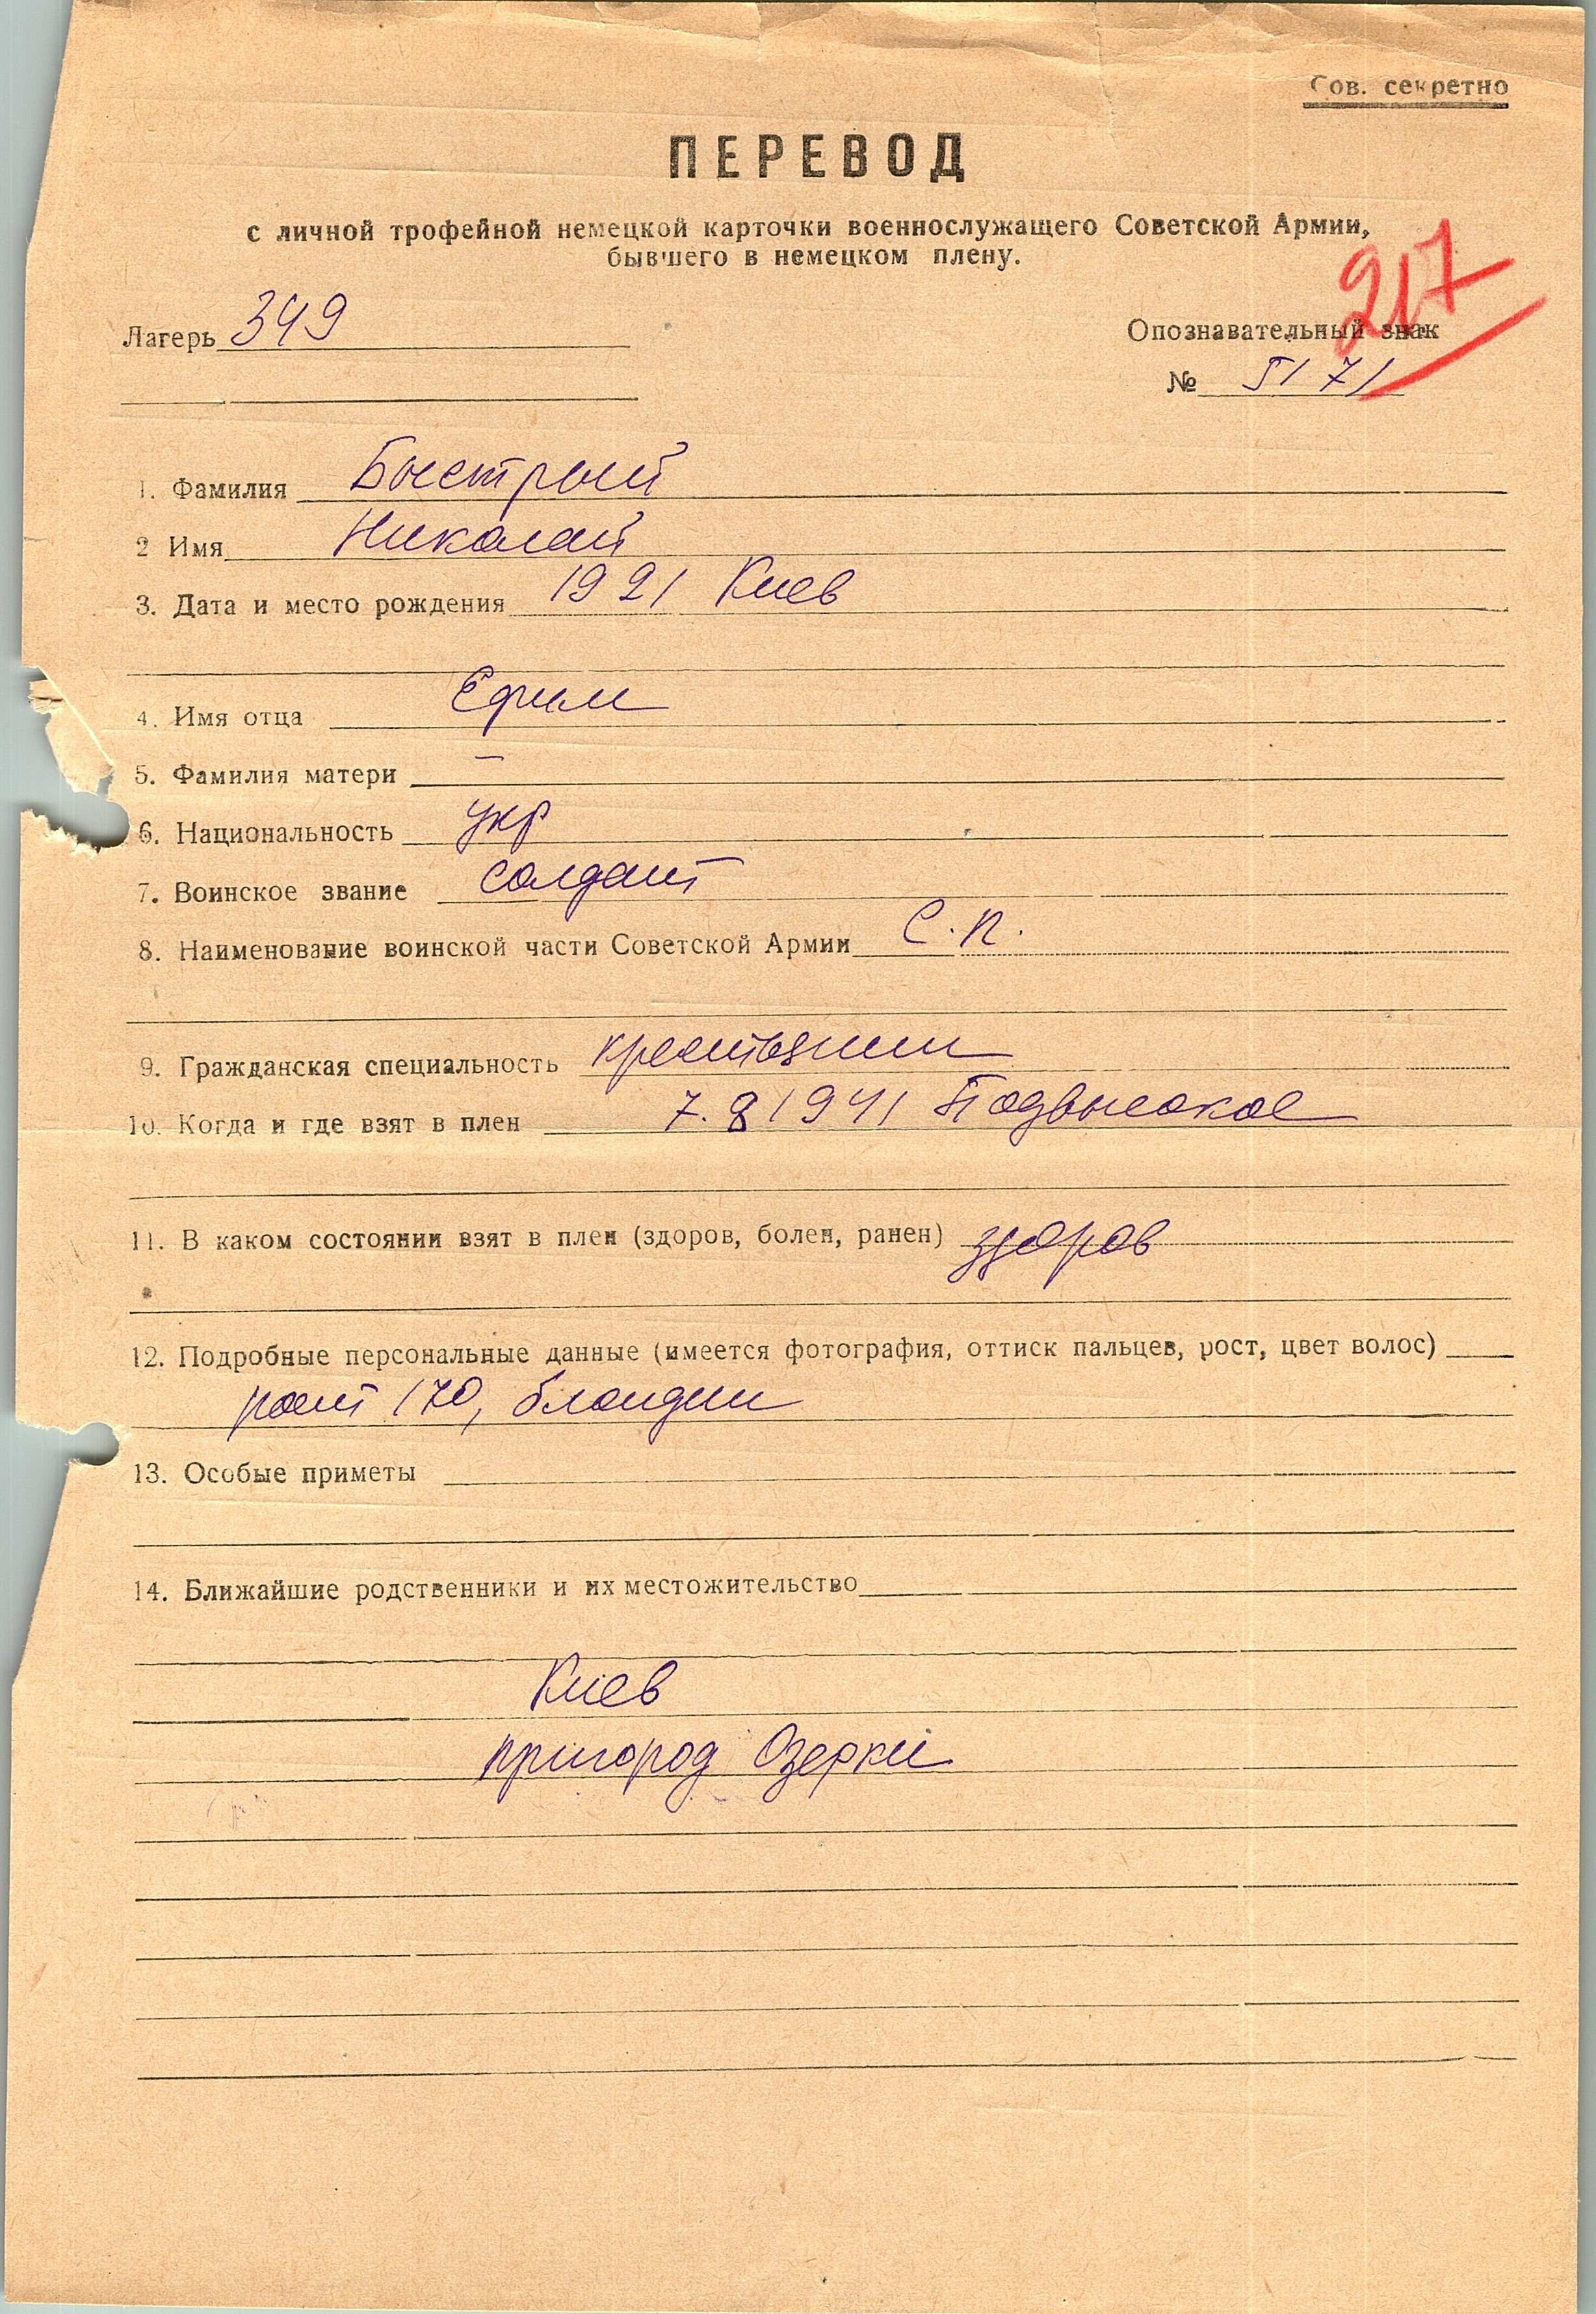 Сов. секретно
ПЕРЕВОД
с личной трофейной немецкой карточки военнослужащего Советской Армии,
бывшего в немецком плену.
217
Лагерь 349
Опознавательный знак
№ 5171
1. Фамилия Быстрый
2 Имя Николай
3. Дата и место рождения 1921 Киев
4. Имя отца Ефим
5. Фамилия матери —
6. Национальность укр
7. Воинское звание солдат
8. Наименование воинской части Советской Армии С.п.
9. Гражданская специальность крестьянин
10. Когда и где взят в плен 7.8 1941 Подвысокое
11. В каком состоянии взят в плен (здоров, болен, ранен) здоров
12. Подробные персональные данные (имеется фотография, оттиск пальцев, рост, цвет волос)
рост 170, блондин
13. Особые приметы
14. Ближайшие родственники и их местожительство
Киев
пригород Озерки